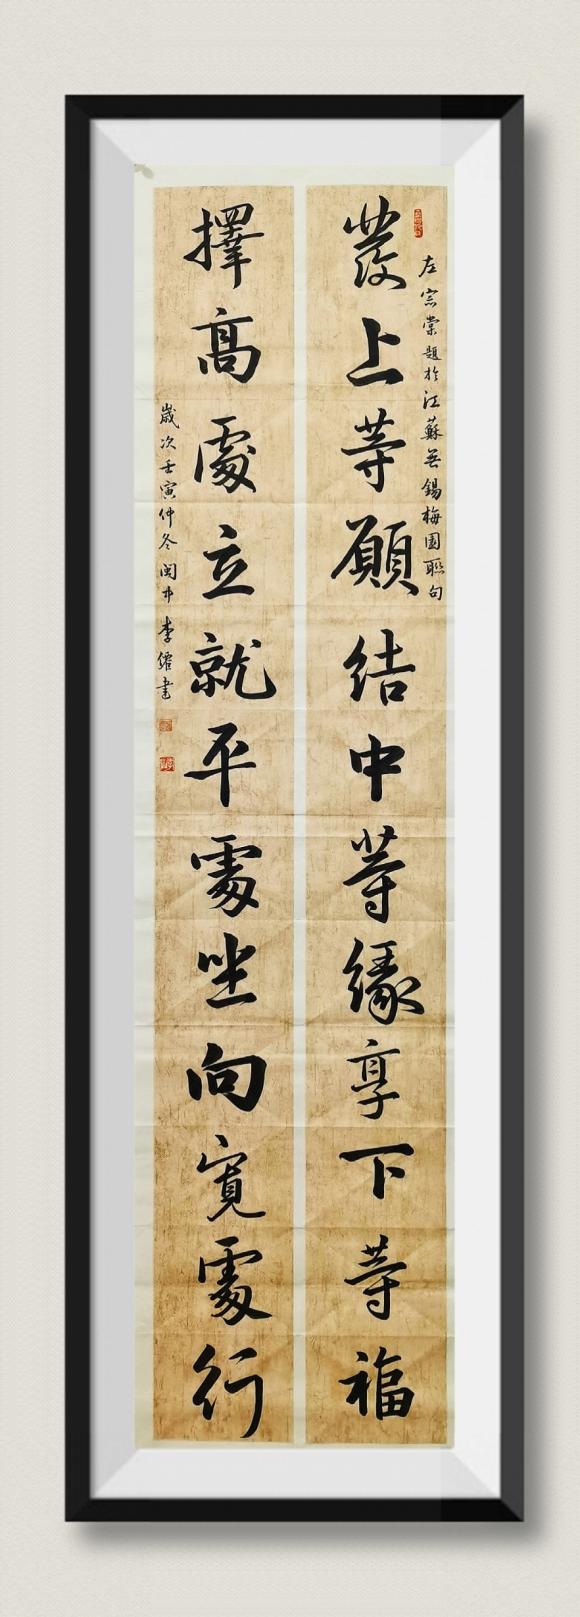 左宗棠題於江蘇無錫梅園聯句
發上等願結中等緣享下等福
擇高處立就平處坐向寬處行
歲次壬寅仲冬閩中李書